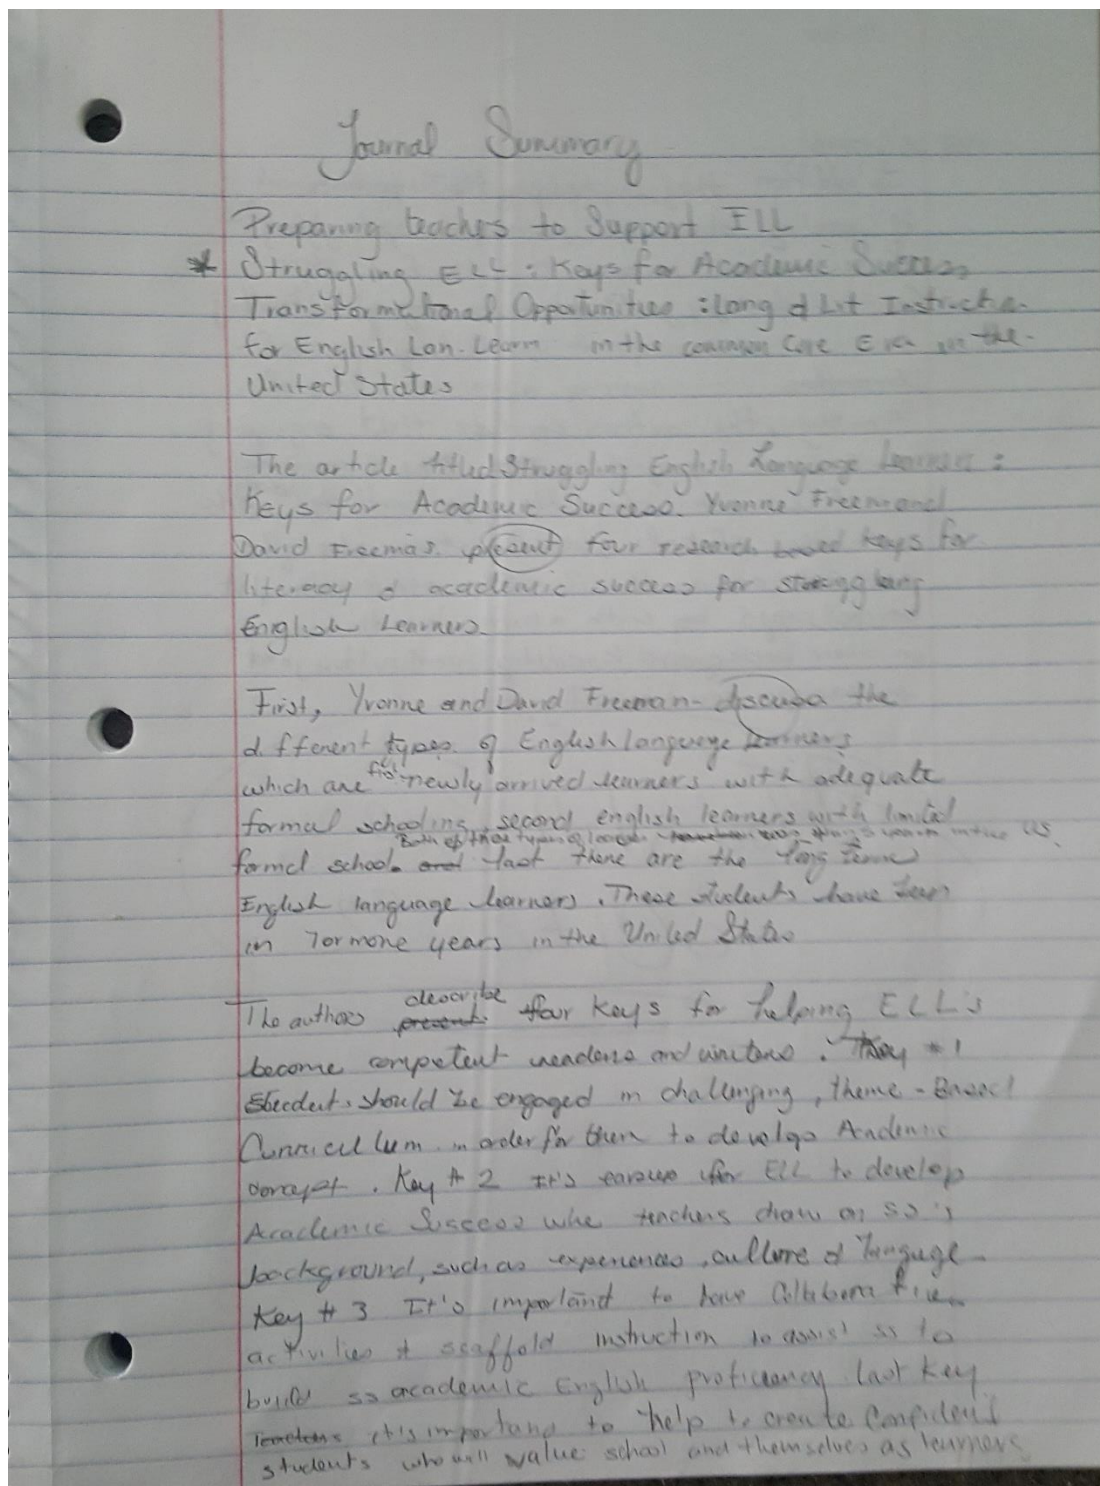 Journal Summary
Preparing teachers to Support ELL
* Struggling ELL : Keys for Academic Success
Transformational Opportunities : Lang & Lit Instruction
for English Lan. Learn in the common Core Era in the
United States
The article titled Struggling English Language Learners :
Keys for Academic Success. Yvonne Freeman and
David Freeman. present four research based keys for
literacy & academic success for struggling
English Learners.
First, Yvonne and David Freeman discuss the
different types of English language learners
which are first newly arrived learners with adequate
formal schooling, second english learners with limited
Both of these types of learners years in the US.
formal school. and last there are the long term
English language learners. These students have been
in 7 or more years in the United States
The authors present describe four Keys for helping ELL's
become competent readers and writers. Key #1
Students should be engaged in challenging, theme-Based
Curriculum in order for them to develop Academic
concept. Key # 2 It's easier for ELL to develop
Academic Success when teachers draw on ss's
background, such as experiences, culture & language.
Key # 3 It's important to have Collaborative
activities & scaffold instruction to assist ss to
build ss academic English proficiency. last key
Teachers it's important to help to create Confident
students who will value school and themselves as learners